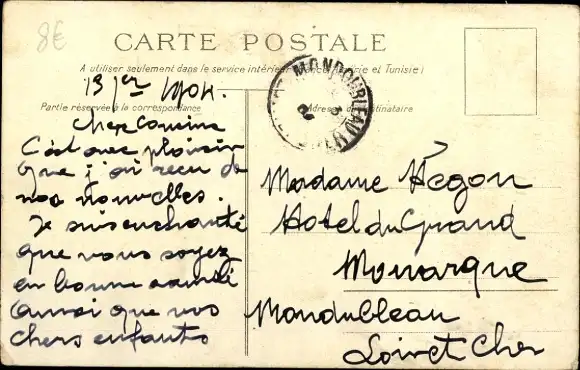 8€
CARTE POSTALE
A utiliser seulement dans le service intérieur
rie et Tunisie)
Partie réservée à la correspondance
Adresse du destinataire
MONDOUBLEAU
1904.
Cher Cousine
C'est avec plaisir
que j'ai reçu de
nos nouvelles.
Je suis enchanté
que vous soyez
en bonne santé
ainsi que vos
chers enfants
Madame Hegon
Hotel du Grand
Monarque
Mondubleau
Loir et Cher